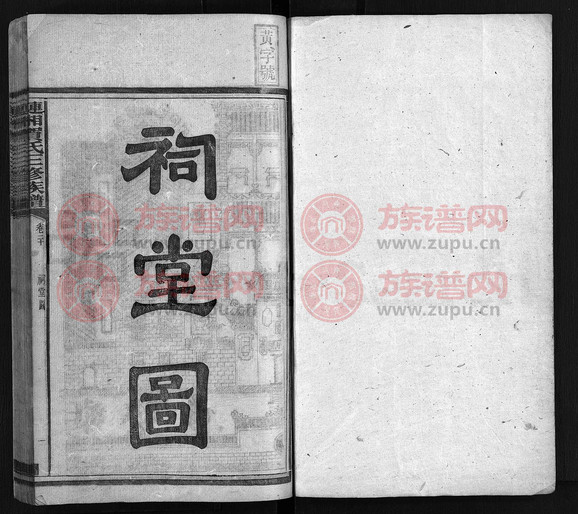 黃字號
祠堂圖
湘賈氏三修族譜
卷首
祠堂圖
一
族谱网
www.zupu.cn
族谱网
www.zupu.cn
族谱网
www.zupu.cn
族谱网
www.zupu.cn